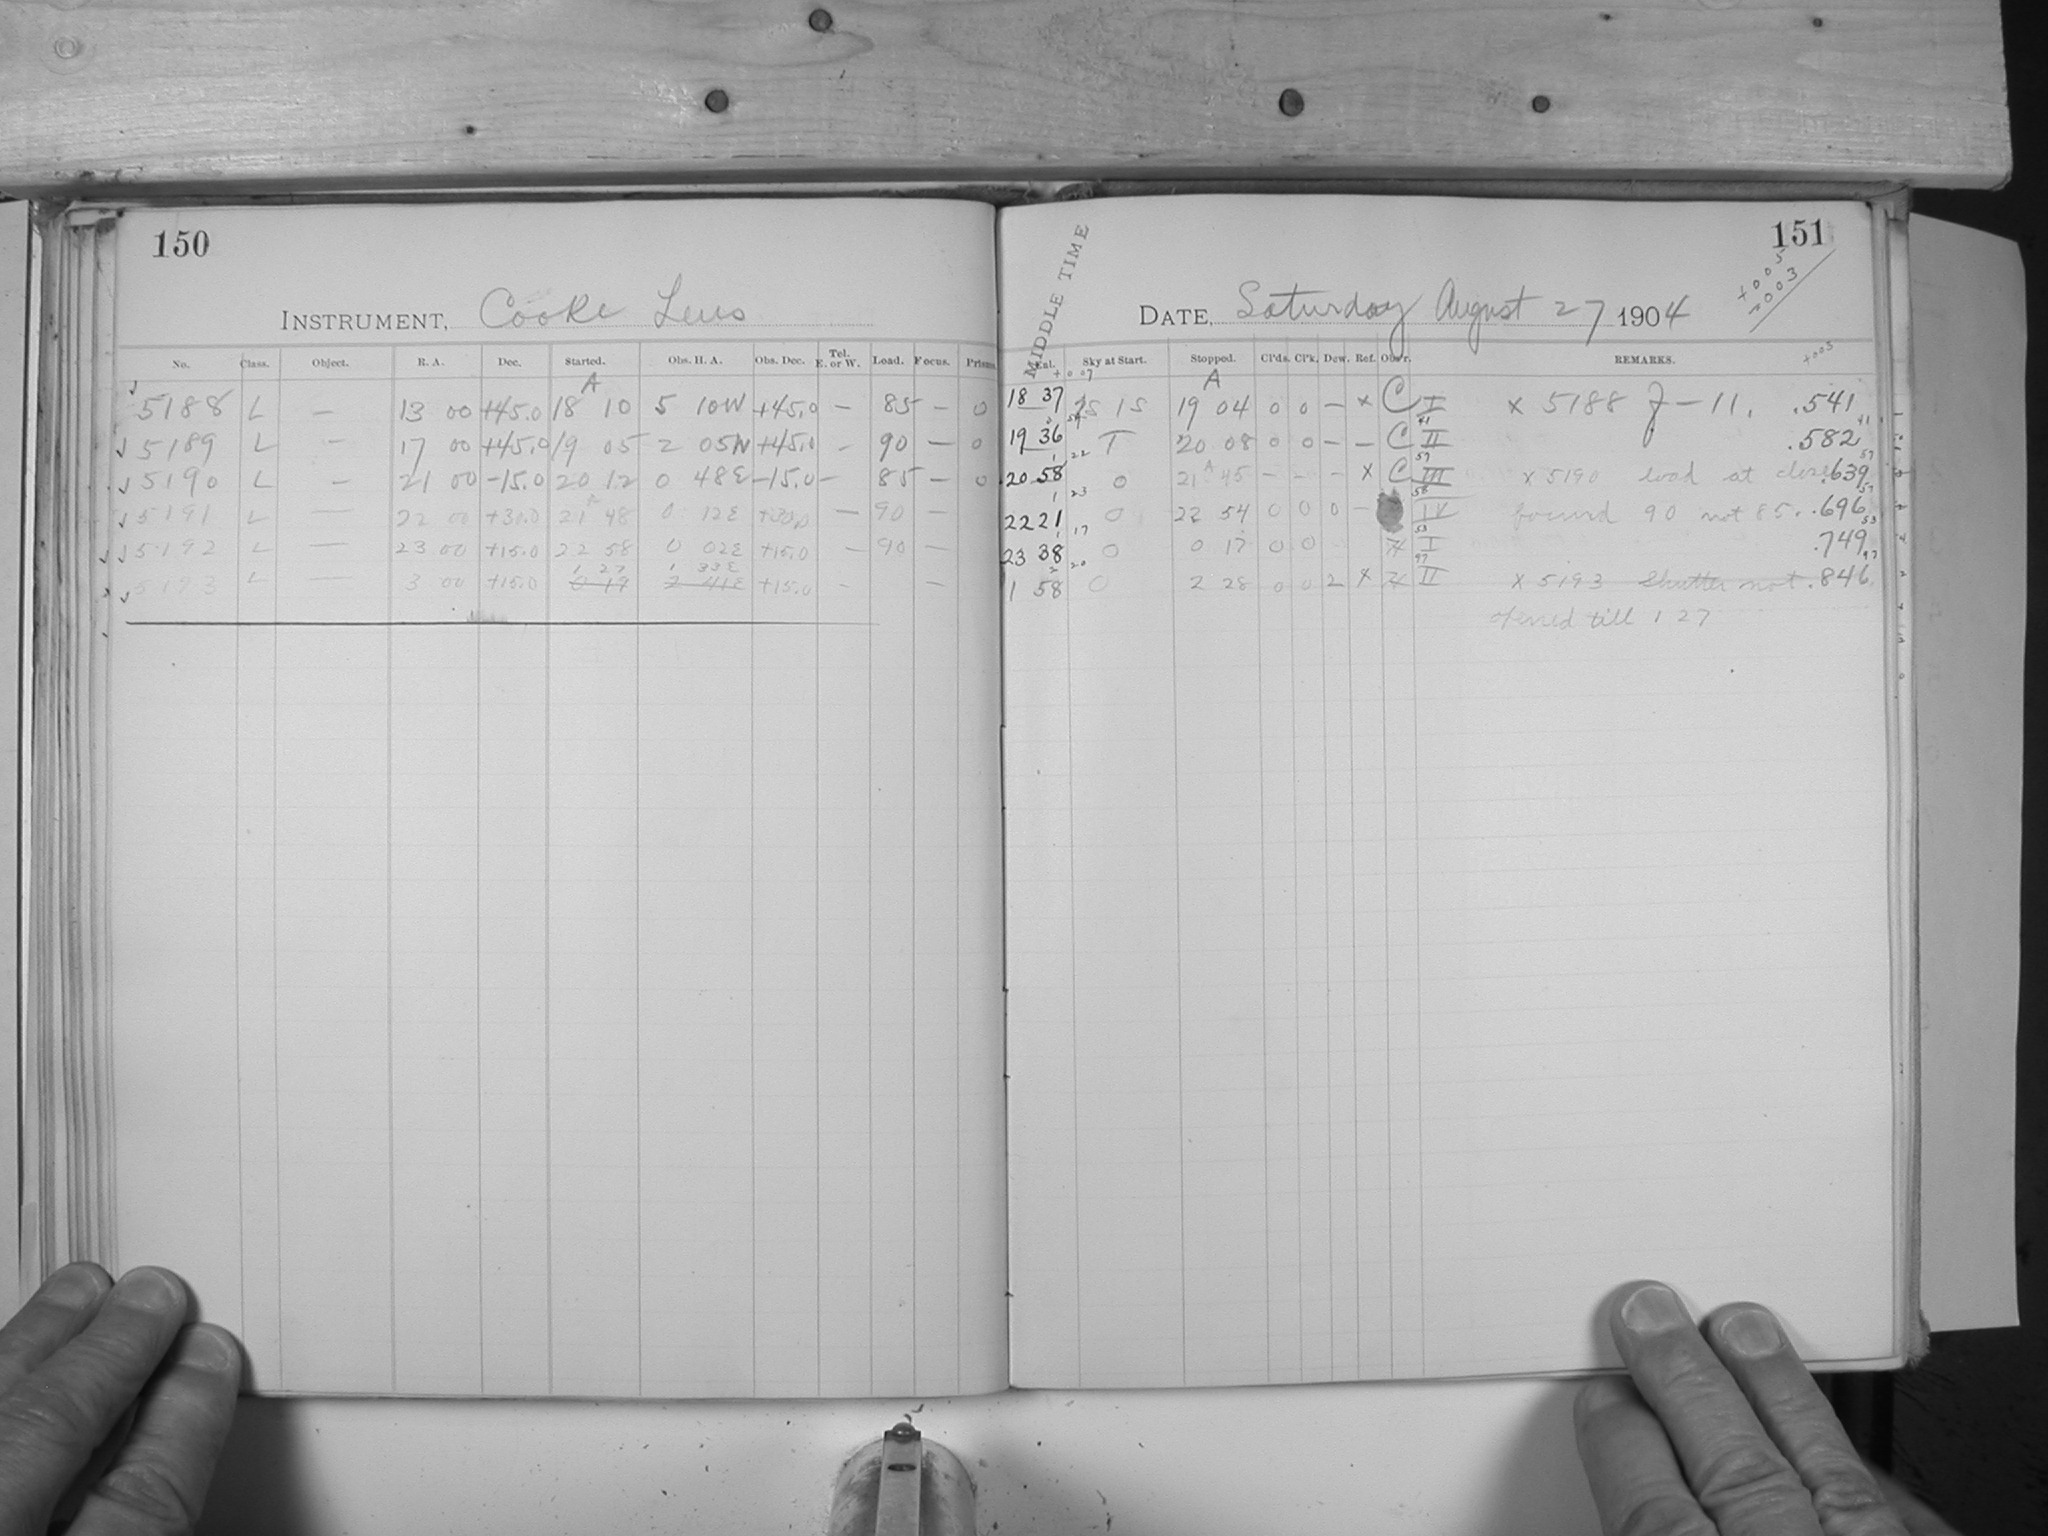 150
INSTRUMENT, Cooke Lens
No. Class. Object. R. A. Dec. Started. Obs. H. A. Obs. Dec. Tel. E. or W. Load. Focus. Prism.
A
5188 L — 13 00 +45.0 18 10 5 10W +45.0 — 85 — 0
5189 L — 17 00 +45.0 19 05 2 05W +45.0 - 90 — 0
5190 L — 21 00 -15.0 20 12 0 48E -15.0 — 85 — 0
5191 L — 22 00 +30.0 21 48 0 12E +30.0 — 90 —
5192 L — 23 00 +15.0 22 58 0 02E +15.0 — 90 —
1 27 1 33E
5193 L 3 00 +15.0 0 19 2 41E +15.0 - —
151
+005
+003
MIDDLE TIME
DATE, Saturday August 27 1904
Sky at Start. Stopped. Cl'ds. Cl'k. Dew. Ref. Obs'r. REMARKS.
+003
+007
A
18 37 1S 19 04 0 0 — x C I x 5188 J-11. .541
19 36 T 20 08 0 0 — — C II .582
20 58 0 21 45 - - - x C III x 5190 load at close .639
22 21 0 22 54 0 0 0 - IV found 90 not 85. .696
23 38 0 0 17 0 0 I .749
1 58 0 2 28 0 0 2 x II x 5193 Shutter not .846
opened till 1 27